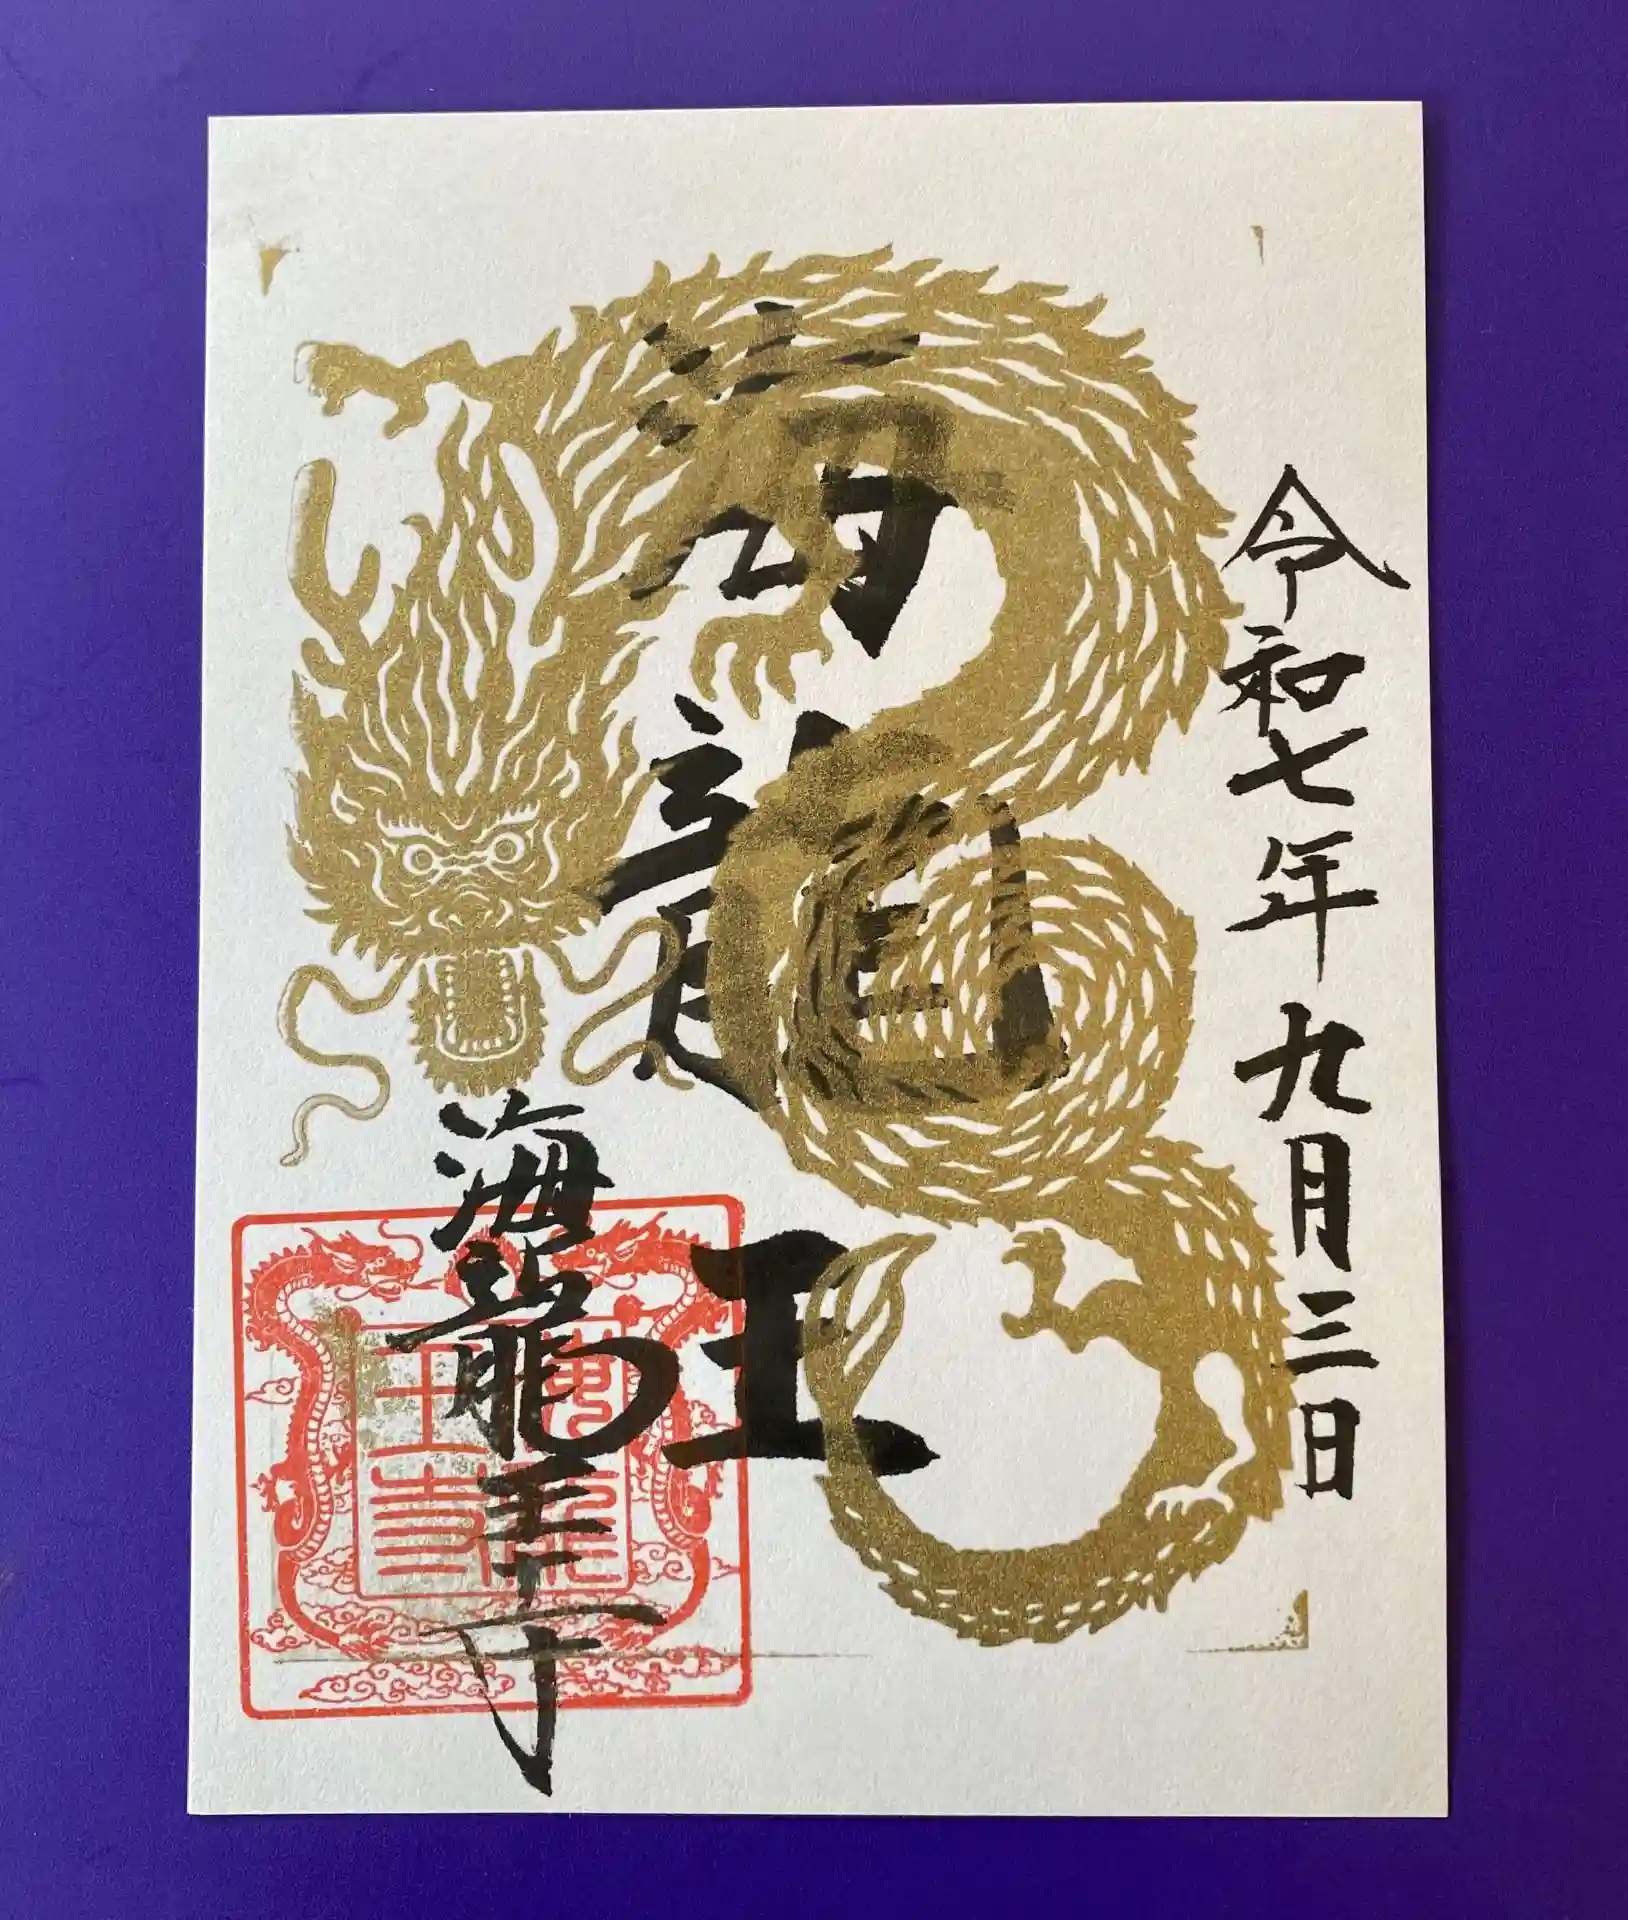 令和七年九月三日
海龍王
海龍王寺
海龍王寺